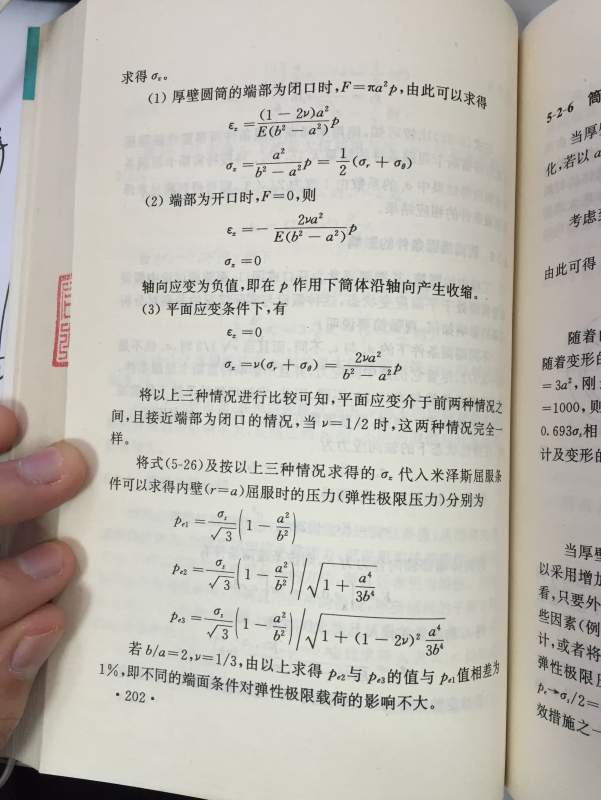 求得 σz。
(1) 厚壁圆筒的端部为闭口时,F=πa²p,由此可以求得
εz=(1-2ν)a²/E(b²-a²)p
σz=a²/b²-a²p=1/2(σr+σθ)
(2) 端部为开口时,F=0,则
εz=-2νa²/E(b²-a²)p
σz=0
轴向应变为负值,即在 p 作用下筒体沿轴向产生收缩。
(3) 平面应变条件下,有
εz=0
σz=ν(σr+σθ)=2νa²/b²-a²p
将以上三种情况进行比较可知,平面应变介于前两种情况之
间,且接近端部为闭口的情况,当 ν=1/2 时,这两种情况完全一
样。
将式(5-26)及按以上三种情况求得的 σz 代入米泽斯屈服条
件可以求得内壁(r=a)屈服时的压力(弹性极限压力)分别为
pe1=σs/√3(1-a²/b²)
pe2=σs/√3(1-a²/b²)/√(1+a⁴/3b⁴)
pe3=σs/√3(1-a²/b²)/√(1+(1-2ν)²a⁴/3b⁴)
若 b/a=2,ν=1/3,由以上求得 pe2与 pe3的值与 pe1值相差为
1%,即不同的端面条件对弹性极限载荷的影响不大。
·202·
5-2-6 筒
当厚
化,若以 a
考虑到
由此可得
随着
随着变形的
=3a²,刚
=1000,则
0.693σ,相
计及变形的
当厚
以采用增加
看,只要外
些因素(例
计,或者将
弹性极限压
pe→σs/2=
效措施之一